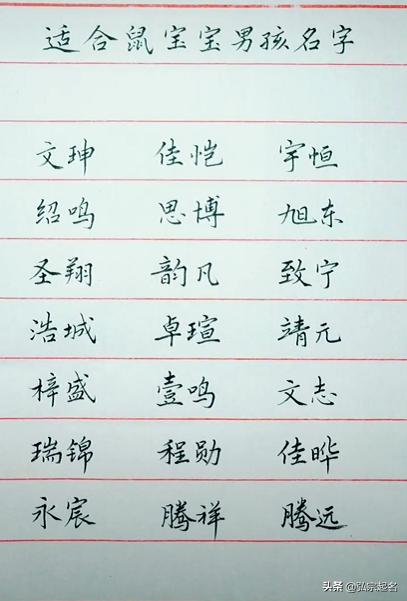 适合鼠宝宝男孩名字
文珅 佳恺 宇恒
绍鸣 思博 旭东
圣翔 韵凡 致宁
浩城 卓瑄 靖元
梓盛 壹鸣 文志
瑞锦 程勋 佳晔
永宸 腾祥 腾远
头条 @弘宗起名